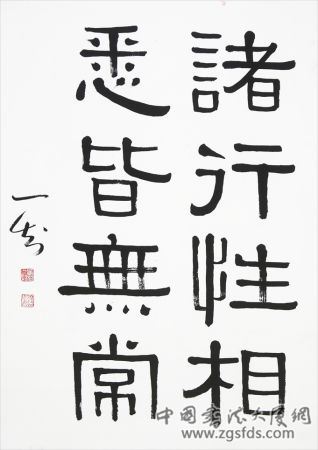 諸行性相
悉皆無常
中國書法大廈網
www.zgsfds.com